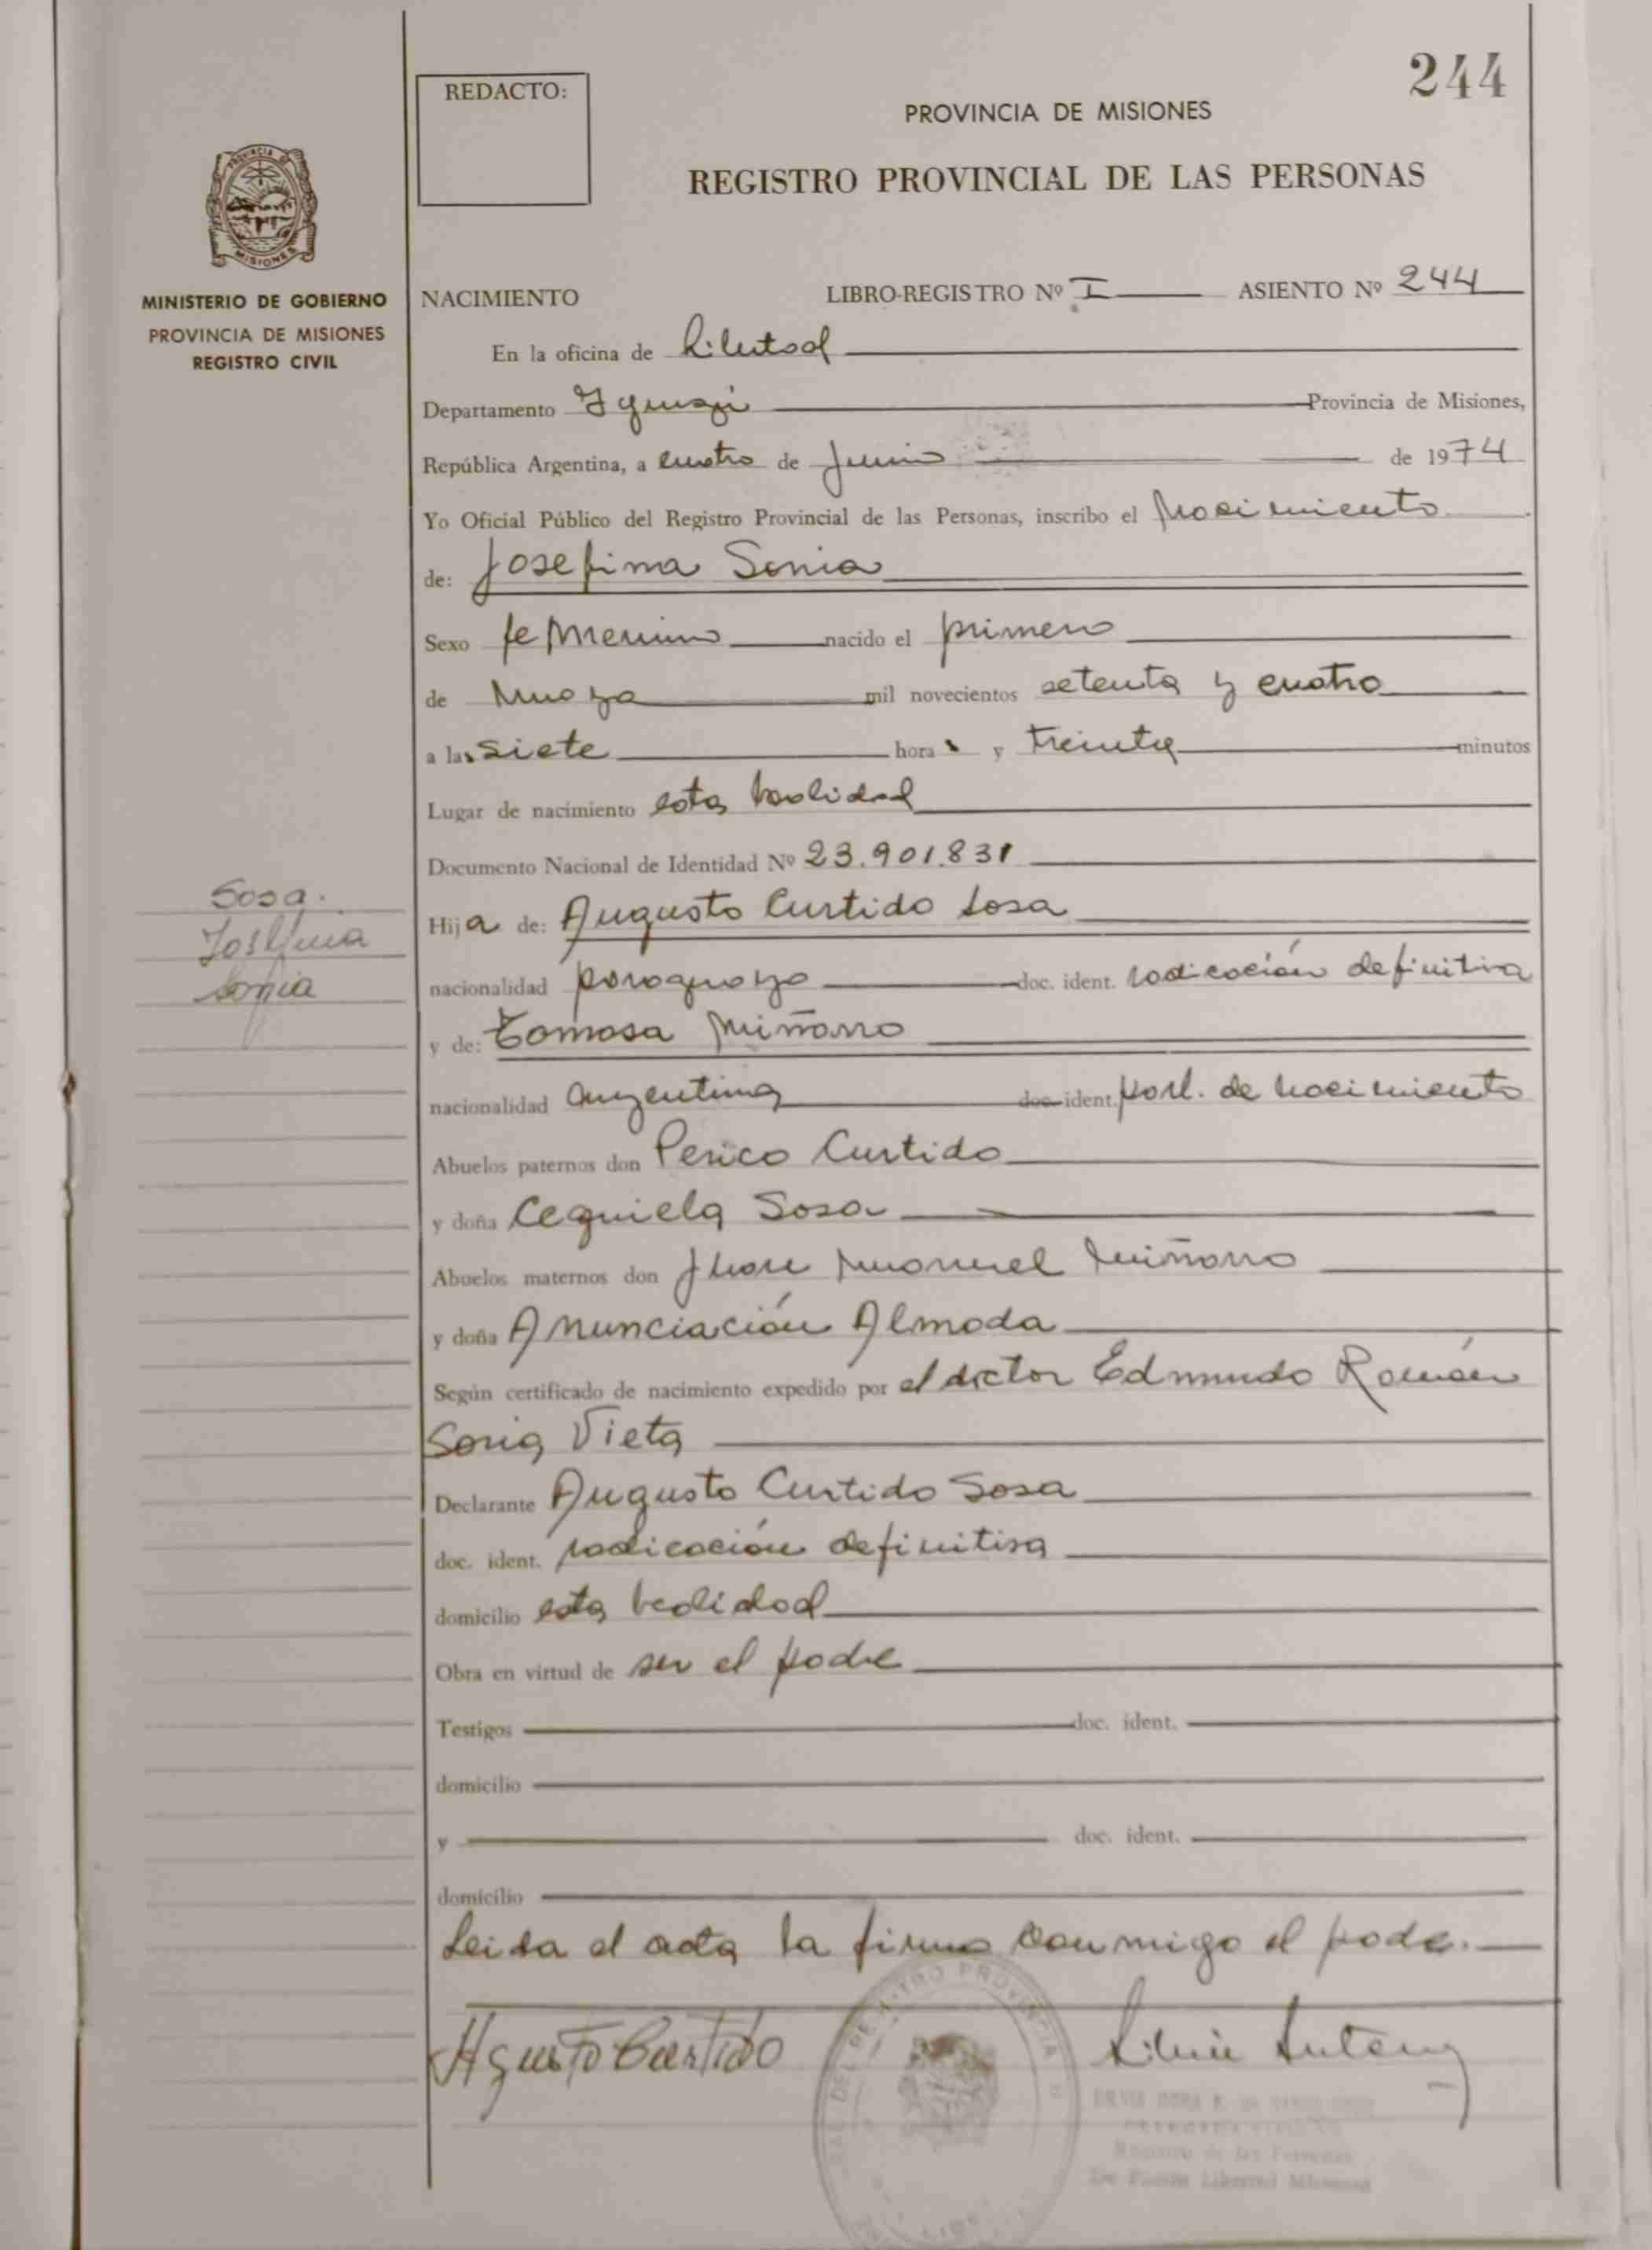 244
REDACTO:
PROVINCIA DE MISIONES
REGISTRO PROVINCIAL DE LAS PERSONAS
PROVINCIA DE
MISIONES
MINISTERIO DE GOBIERNO
PROVINCIA DE MISIONES
REGISTRO CIVIL
NACIMIENTO LIBRO-REGISTRO Nº I ASIENTO Nº 244
En la oficina de Libertad
Departamento Iguazú Provincia de Misiones,
República Argentina, a cuatro de Junio de 1974
Yo Oficial Público del Registro Provincial de las Personas, inscribo el Nacimiento
de: Josefina Sonia
Sexo femenino nacido el primero
de Mayo mil novecientos setenta y cuatro
a las siete horas y treinta minutos
Lugar de nacimiento esta localidad
Documento Nacional de Identidad Nº 23.901.831
Sosa.
Josefina
Sofia
Hija de: Augusto Curtido Sosa
nacionalidad paraguaya doc. ident. radicación definitiva
y de: Tomasa Miñarro
nacionalidad argentina doc. ident. part. de nacimiento
Abuelos paternos don Perico Curtido
y doña Cequiela Sosa
Abuelos maternos don Juan Manuel Miñarro
y doña Anunciación Almada
Según certificado de nacimiento expedido por el doctor Edmundo Román
Soria Vieta
Declarante Augusto Curtido Sosa
doc. ident. radicación definitiva
domicilio esta localidad
Obra en virtud de ser el padre
Testigos doc. ident.
domicilio
y doc. ident.
domicilio
Leida el acta la firma conmigo el padre.
Agusto Curtido
Registro de las Personas
Libertad Misiones